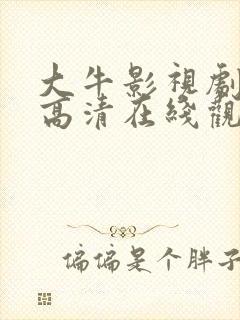 大牛影視劇
高清在綫觀
偏偏是个胖子